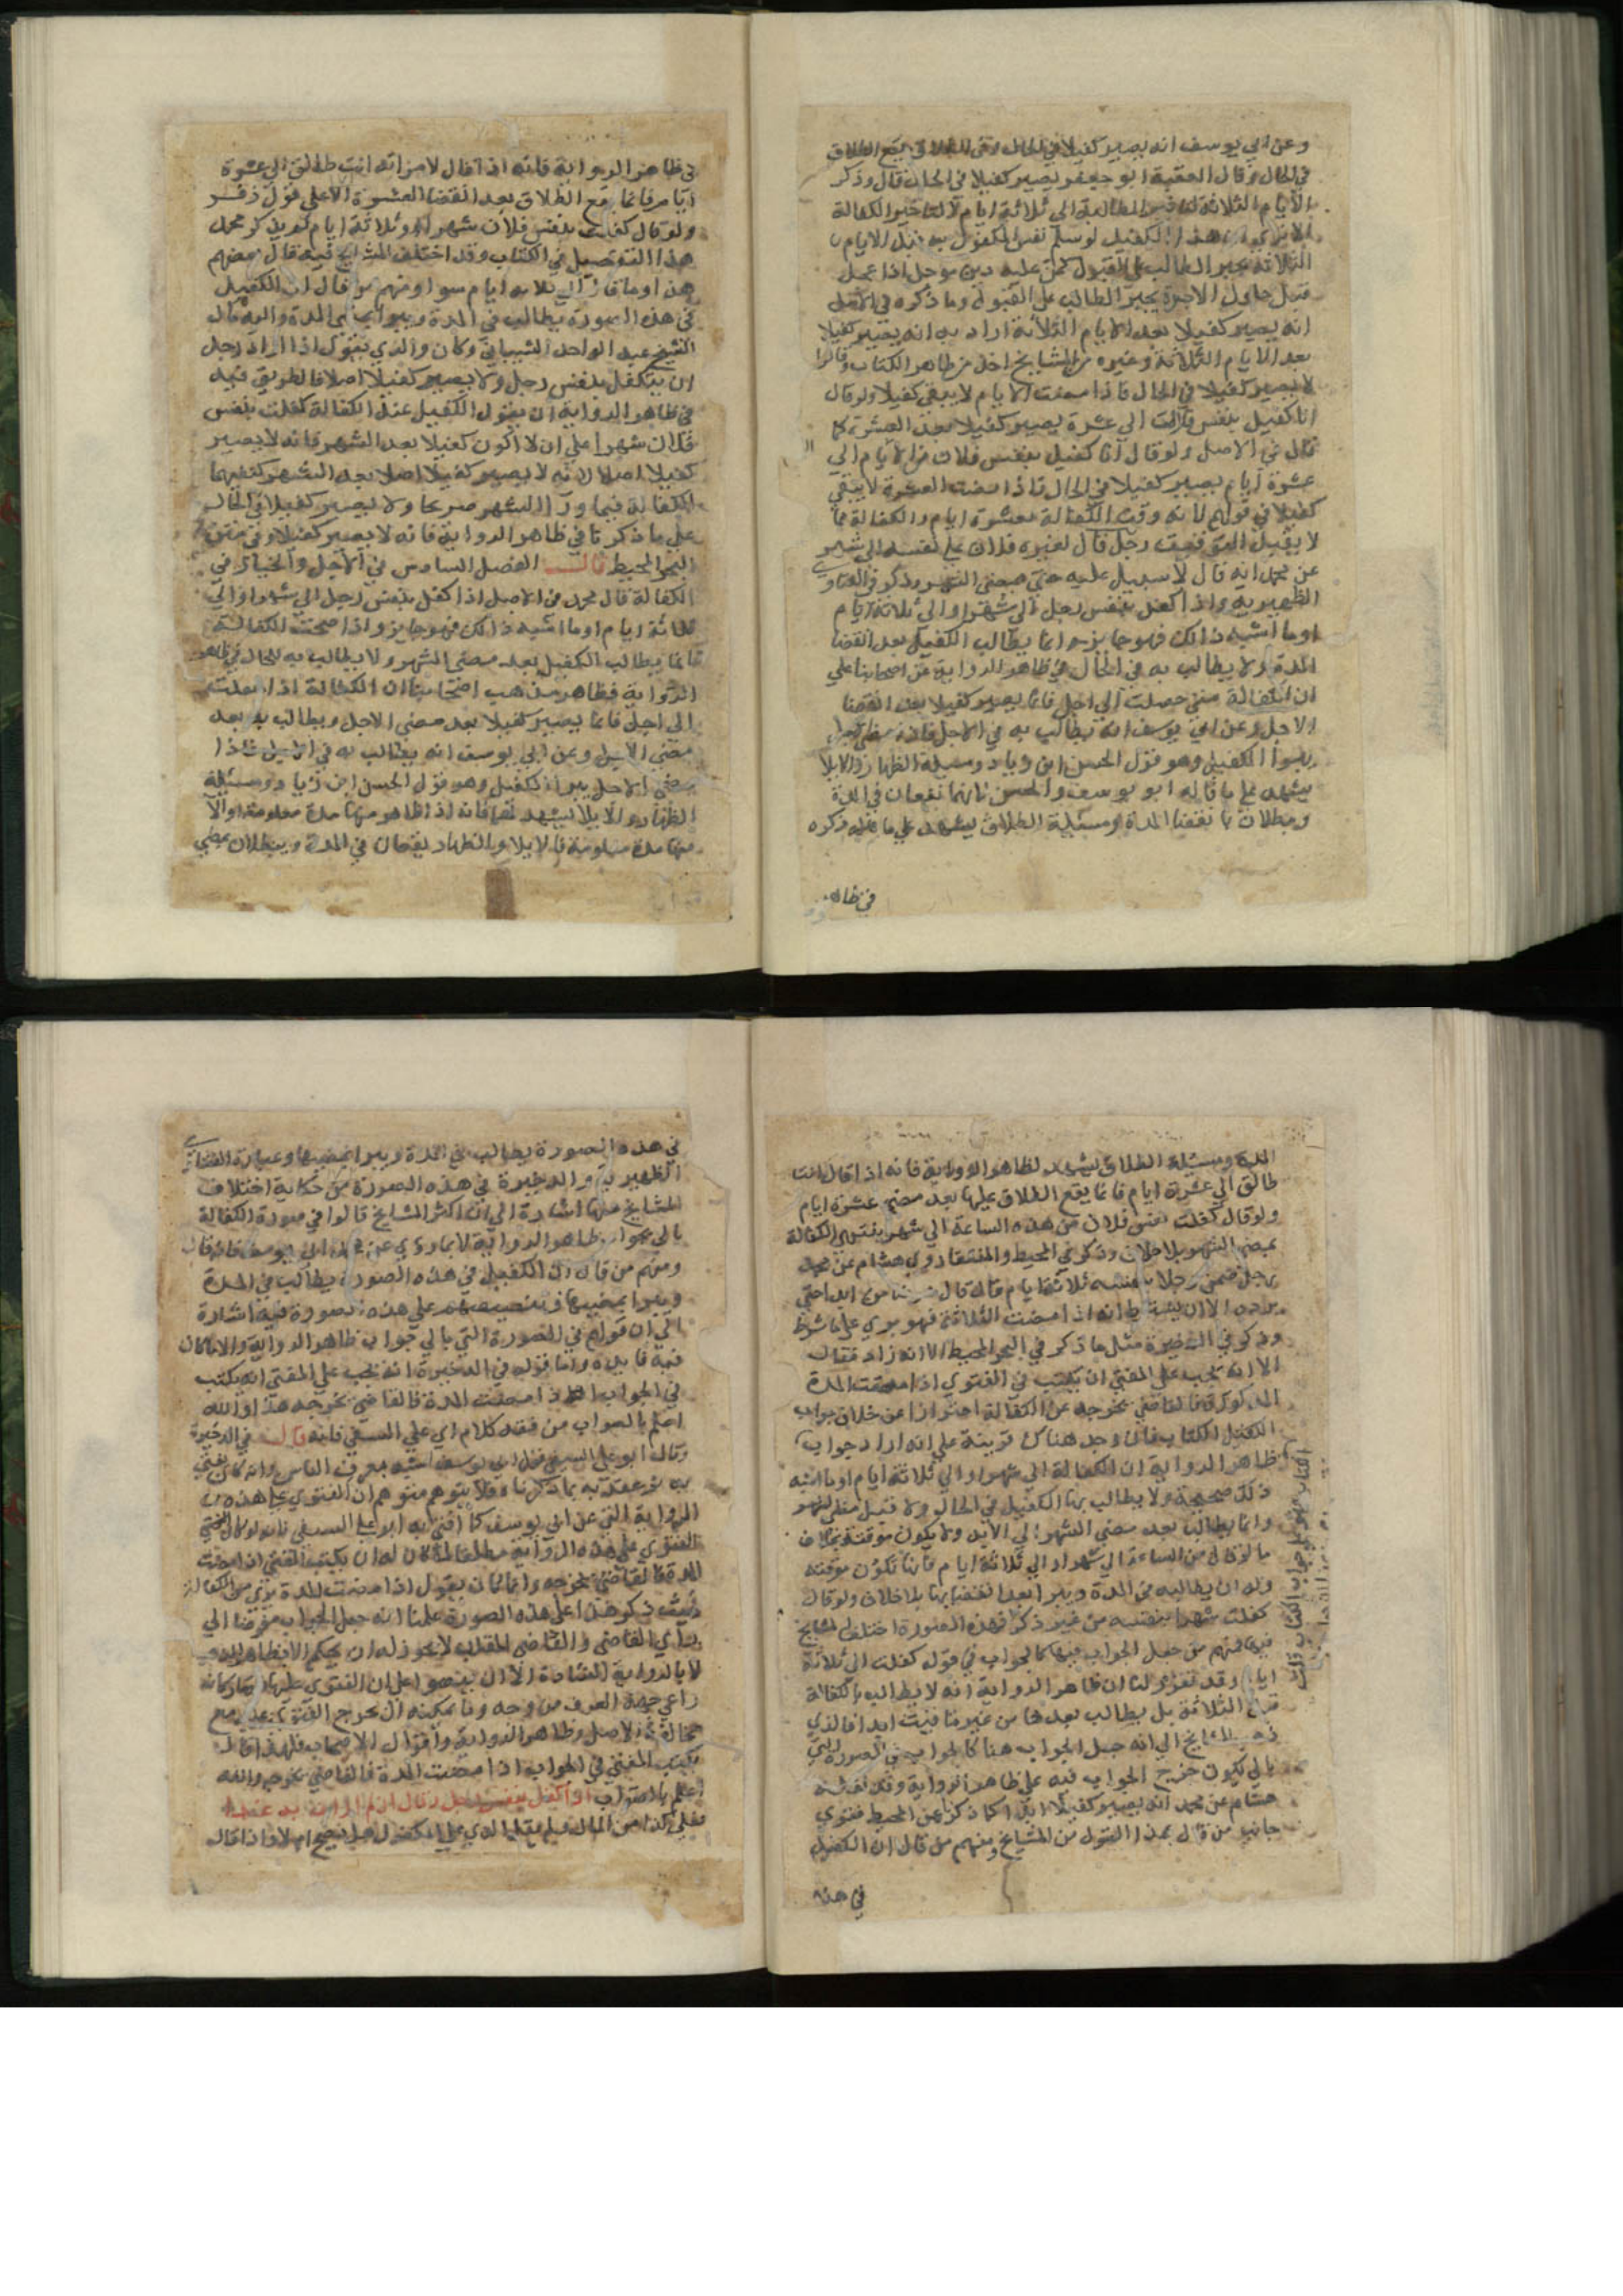 وعن ابي يوسف انه يصير كفيلا في الحال وفي الطلاق يقع الطلاق
في الحال وقال الفقيه ابو جعفر يصير كفيلا في الحال قال وذكر
الايام الثلاثة لتاخير المطالبة الى ثلاثة ايام لا لتاخير الكفالة
الا ترى ان هذا الكفيل لو سلم نفس المكفول به قبل الايام
الثلاثة يجبر الطالب على القبول كمن عليه دين موجل اذا عجل
قبل حلول الاجرة يجبر الطالب على القبول وما ذكره في الاصل
انه يصير كفيلا بعد الايام الثلاثة اراد به انه يصير كفيلا
بعد الايام الثلاثة وغيره من المشايخ اخذ من ظاهر الكتاب وقالوا
لا يصير كفيلا في الحال فاذا مضت الايام لا يبقى كفيلا ولو قال
انا كفيل بنفس فلان الى عشرة يصير كفيلا بعد العشرة كما
قال في الاصل ولو قال انا كفيل بنفس فلان من الايام الى
عشرة ايام يصير كفيلا في الحال فاذا مضت العشرة لا يبقى
كفيلا في قولهم لانه وقت الكفالة بعشرة ايام والكفالة مما
لا يقبل التوقيت رجل قال لغيره فلان علي نفسه الى شهر
عن محمد انه قال لا سبيل عليه حتى يمضى الشهر وذكر في الفتاوي
الظهيرية واذا كفل بنفس رجل الى شهر او الى ثلاثة ايام
او ما اشبه ذالك فهو جايز وانما يطالب الكفيل بعد انقضا
المدة ولا يطالب به في الحال في ظاهر الرواية عن اصحابنا على
ان الكفالة متى حصلت الى اجل فانما يصير كفيلا بعد انقضا
الاجل وعن ابي يوسف انه يطالب به في الاجل فاذا مضى الاجل
يبرا الكفيل وهو قول الحسن ابن زياد ومسيلة الظهار والايلا
يشهد على ما قاله ابو يوسف والحسن فانهما يقعان في المدة
ويبطلان بانقضا المدة ومسيلة الطلاق يشهد على ما ذكره
في ظاهر
في ظاهر الرواية فانه اذا قال لامراته انت طالق الى عشرة
ايام فانما يقع الطلاق بعد انقضا العشرة الا على قول زفر
ولو قال كفلت بنفس فلان شهرا او ثلاثة ايام لم يذكر محمد
هذا التفصيل في الكتاب وقد اختلف المشايخ فيه قال بعضهم
هذا وما قال الى ثلاثة ايام سوا ومنهم من قال ان الكفيل
في هذه الصورة يطالب في المدة ويبرا بمضى المدة واليه قال
الشيخ عبد الواحد الشيباني وكان والدي يقول اذا اراد رجل
ان يتكفل بنفس رجل ولا يصير كفيلا اصلا فالطريق فيه
في ظاهر الرواية ان يقول الكفيل عند الكفالة كفلت بنفس
فلان شهرا على ان لا اكون كفيلا بعد الشهر فانه لا يصير
كفيلا اصلا لانه لا يصير كفيلا اصلا بعد الشهر كنفيهما
الكفالة فيما ورا الشهر صريحا ولا يصير كفيلا في الحال
على ما ذكرنا في ظاهر الرواية فانه لا يصير كفيلا وفي
البحر المحيط قالـــ الفصل السادس في الاجل والخيار في
الكفالة قال محمد في الاصل اذا كفل بنفس رجل الى شهر او الى
ثلاثة ايام او ما اشبه ذالك فهو جايز واذا صحت الكفالة
فانما يطالب الكفيل بعد مضى الشهر ولا يطالب به للحال في ظاهر
الرواية فظاهر مذهب اصحابنا ان الكفالة اذا جعلت
الى اجل فانما يصير كفيلا بعد مضى الاجل ويطالب به بعد
مضي الاجل وعن ابي يوسف انه يطالب به في الاجل فاذا
مضى الاجل يبرا الكفيل وهو قول الحسن ابن زياد ومسئلة
الظهار والايلا يشهد لهما فانه اذا ظاهر منها مدة معلومة او آلا
منها مدة معلومة فالايلا والظهار يقعان في المدة ويبطلان بمضي
المدة ومسيلة الطلاق يشهد لظاهر الرواية فانه اذا قال انت
طالق الى عشرة ايام فانما يقع الطلاق عليها بعد مضي عشرة ايام
ولو قال كفلت بنفس فلان من هذه الساعة الى شهر ينتهي الكفالة
بمضي الشهر بلا خلاف وذكر في المحيط والمنتقا روي هشام عن محمد
رجل ضمن رجلا بنفسه ثلاثة ايام قال قال هو ضامن ابدا حتى
يرده الا ان يشترط انه اذا مضت الثلاثة فهو بري على ما شرط
وذكر في الذخيرة مثل ما ذكر في البحر المحيط الا انه زاد فقال
الا انه يجب على المفتي ان يكتب في الفتوي اذا مضت المدة
المذكورة فالقاضي يخرجه عن الكفالة احترازا عن خلاف جواب
الكتاب فان وجد هناك قرينة على انه اراد جواب
ظاهر الرواية ان الكفالة الى شهر او الى ثلاثة ايام او ما اشبه
ذلك صحيحة ولا يطالب بها الكفيل في الحال ولا قبل مضي الشهر
وانما يطالب بعد مضي الشهر الى الابد ولا يكون موقتة بخلاف
ما لو قال من الساعة الى شهر او الى ثلاثة ايام فانها تكون موقتة
وله ان يطالبه في المدة ويبرا بعد انقضايها بلا خلاف ولو قال
كفلت شهرا بنفسه من غير ذكر الى فهذه الصورة اختلف المشايخ
فيها فمنهم من جعل الجواب فيها كالجواب في قوله كفلت الى ثلاثة
ايام وقد تقرر لنا ان ظاهر الرواية انه لا يطالب بالكفالة
قبل الثلاثة بل يطالب بعدها من غير تاقيت ابدا فالذي
ذهب المشايخ الى انه جعل الجواب هنا كالجواب في الصورة التي
بالى يكون خرج الجواب فيه على ظاهر الرواية وقد نقله
هشام عن محمد انه يصير كفيلا ابدا كما ذكرنا عن المحيط فقوي
جانب من قال بهذا القول من المشايخ ومنهم من قال ان الكفيل
في هذه
في هذه الصورة يطالب في المدة ويبرا بمضيها وعبارة الفتاوي
الظهيرية والذخيرة في هذه الصورة من حكاية اختلاف
المشايخ فيها اشارة الى ان اكثر المشايخ قالوا في صورة الكفالة
بالى بجواب ظاهر الرواية لا بما روي عن ابي يوسف فانه قال
ومنهم من قال ان الكفيل في هذه الصورة يطالب في المدة
ويبرا بمضيها فتنصيصهم على هذه الصورة فيه اشارة
الى ان قولهم في الصورة التي بالى جواب ظاهر الرواية والا ما كان
فيه فايدة واما قوله في الذخيرة انه يجب على المفتي انه يكتب
في الجواب اذا مضت المدة فالقاضي يخرجه هذا والله
اعلم بالصواب من فقه كلام ابي علي النسفي فانه قالـــ في الذخيرة
وقال ابو علي النسفي قول ابي يوسف اشبه بعرف الناس وانه كان يفتي
الرواية التي عن ابي يوسف كما افتى به ابو علي النسفي فانه لو كان المفتي
الفتوي على هذه الرواية مطلقا لما كان له ان يكتب المفتي اذا مضت
المدة فالقاضي يخرجه وانما كان يقول اذا مضت المدة بري من الكفالة
فحيث ذكر هذا على هذه الصورة علمنا انه جعل الجواب مفوضا الى
راي القاضي والقاضي المقلد لا يجوز له ان يحكم الا بظاهر
لا بالرواية الشاذة الا ان ينصوا على ان الفتوي عليها
راعي جهة العرف من وجه وما يمكنه ان يخرج
مخالة الاصل وظاهر الرواية واقوال الاصحاب فلهذا قال
يكتب المفتي في الجواب اذا مضت المدة فالقاضي يخرجه والله
اعلم بالصواب اذا كفل بنفس رجل وقال
فعلي كذا من المال